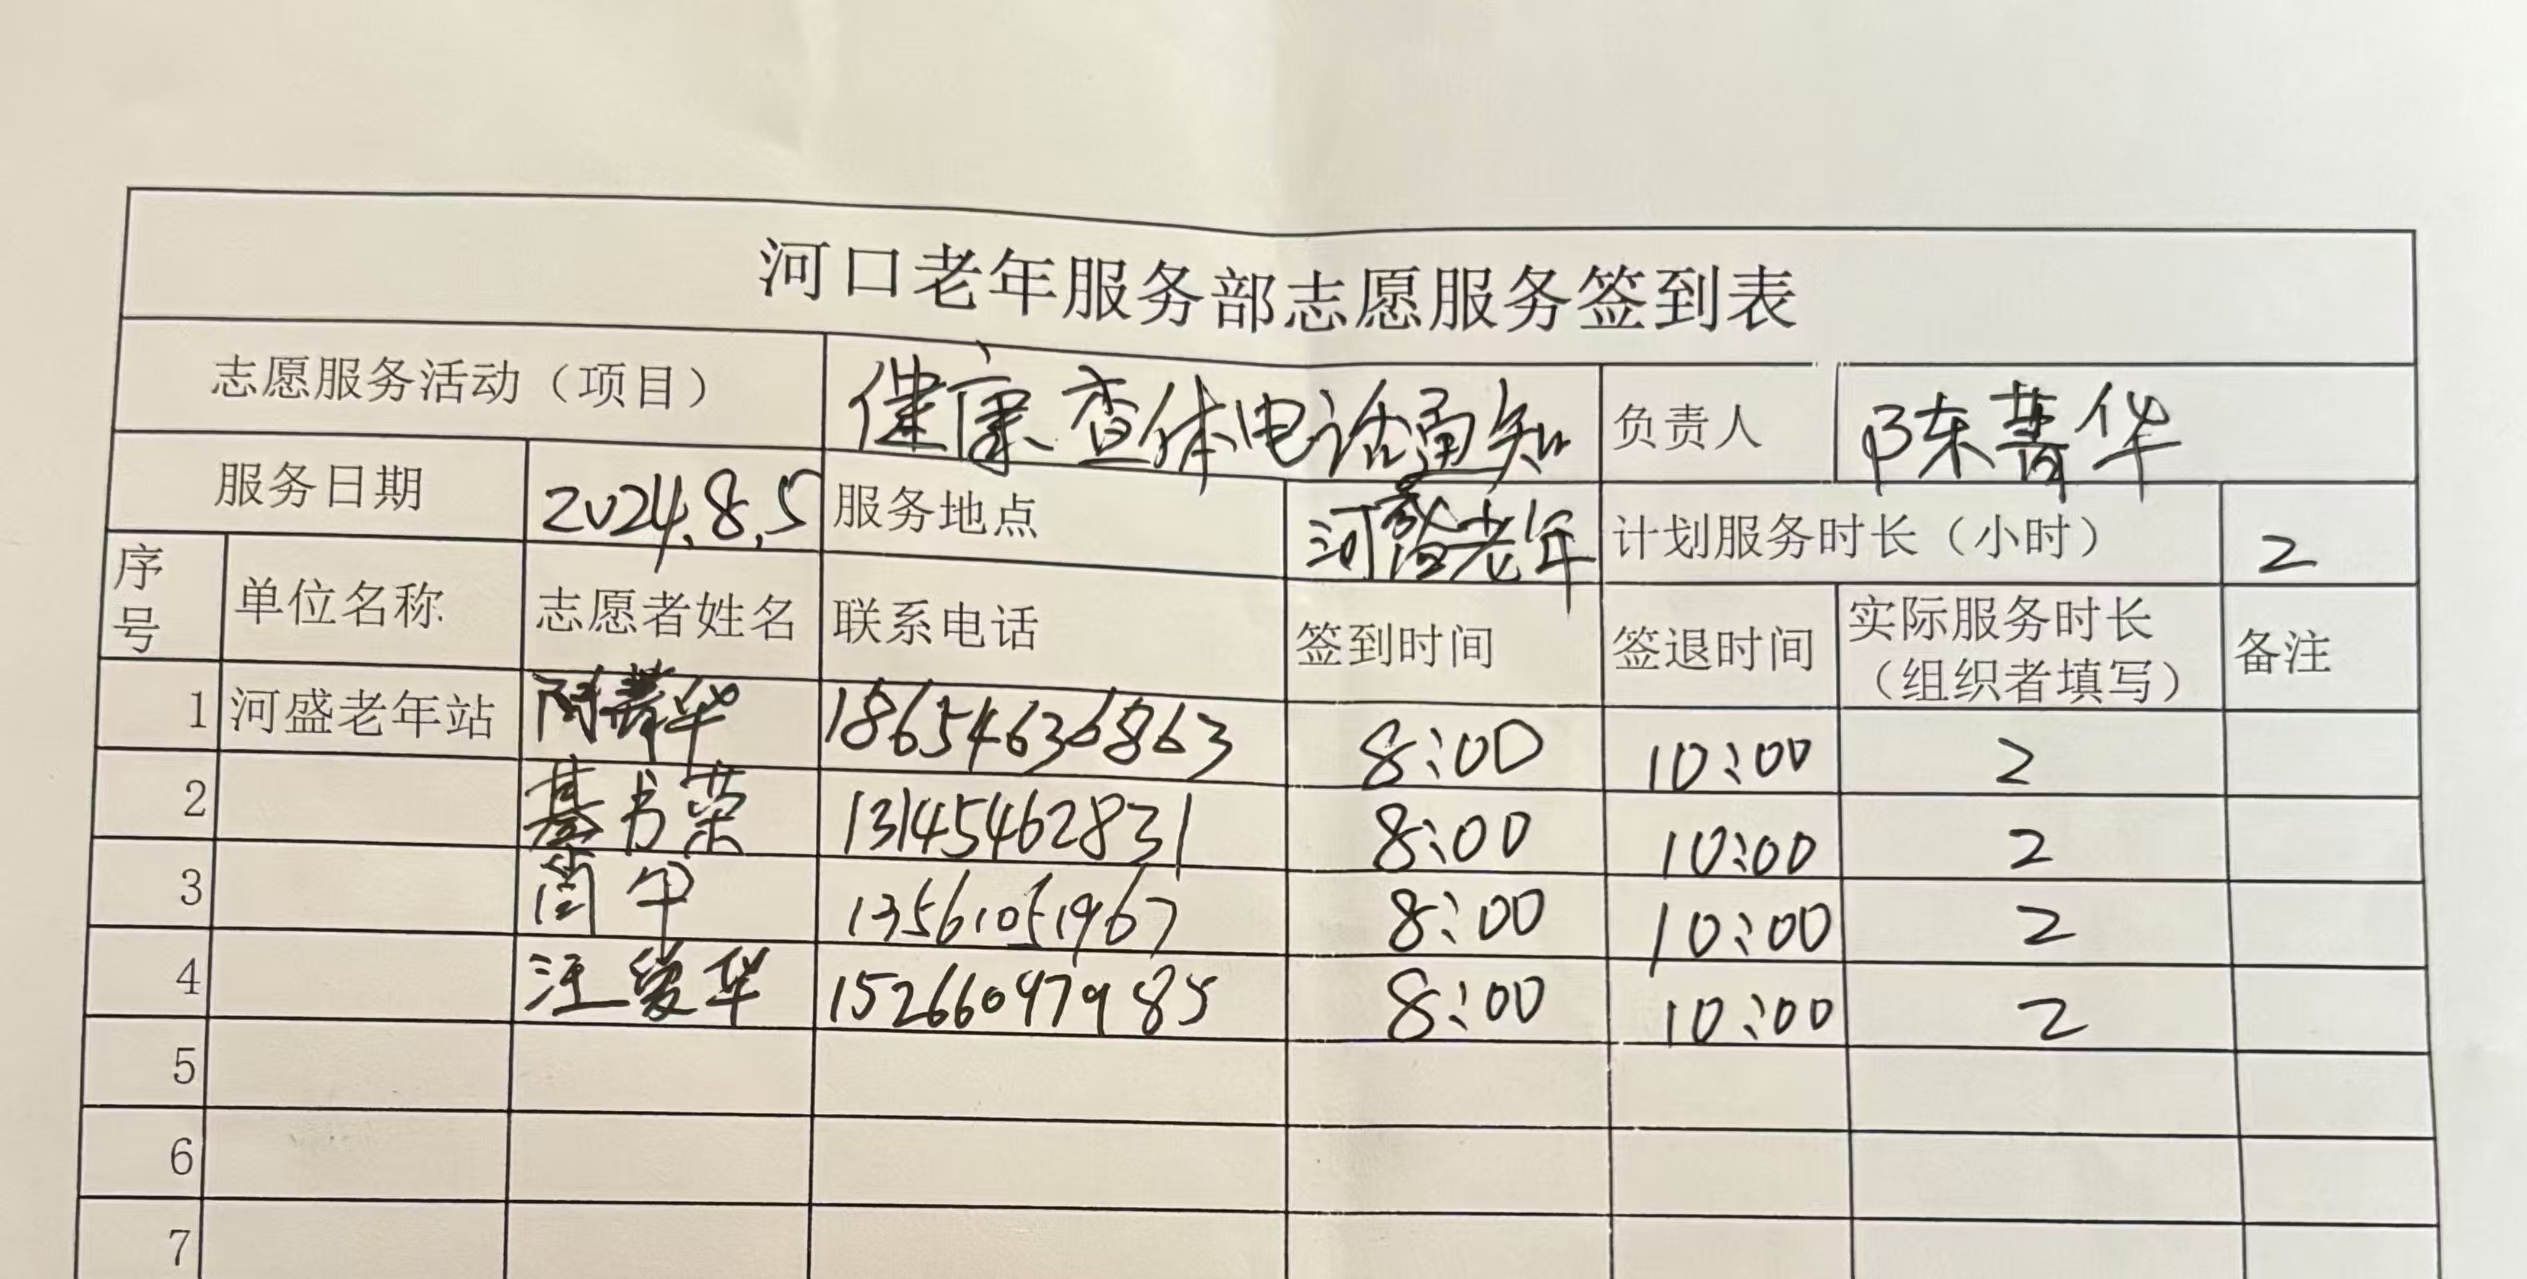 河口老年服务部志愿服务签到表
志愿服务活动（项目） 健康查体电话通知 负责人 陈菁华
服务日期 2024.8.5 服务地点 河盛老年 计划服务时长（小时） 2
序号 单位名称 志愿者姓名 联系电话 签到时间 签退时间 实际服务时长（组织者填写） 备注
1 河盛老年站 陈菁华 18654636863 8:00 10:00 2
2 綦书荣 13145462831 8:00 10:00 2
3 13561051967 8:00 10:00 2
4 汪爱华 15266097985 8:00 10:00 2
5
6
7